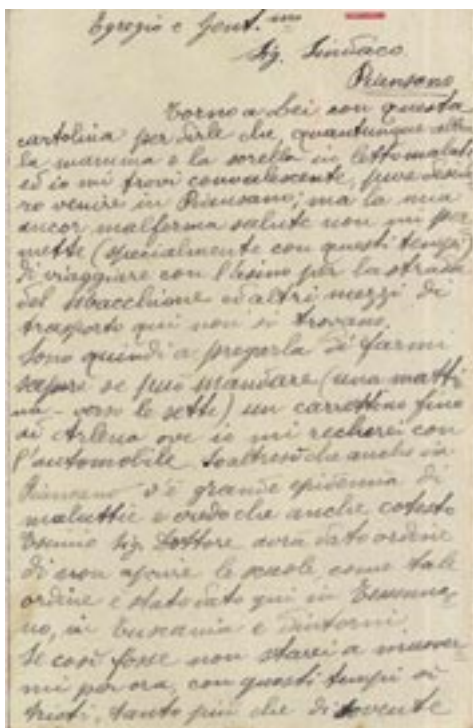 Egregio e Gent.mo
Sig. Sindaco
Piansano
Torno a Lei con questa
cartolina per dirle che, quantunque abbia
la mamma e la sorella in letto malate
ed io mi trovi convalescente, pure deside
ro venire in Piansano; ma la mia
ancor malferma salute non mi per
mette (specialmente con questi tempi)
di viaggiare con l'asino per la strada
del ed altri mezzi di
trasporto qui non si trovano.
Sono quindi a pregarla di farmi
sapere se può mandare (una matti
na - verso le sette) un carrettino fino
ad Arlena ove io mi recherei con
l'automobile. So altresì che anche in
Piansano v'è grande epidemia di
malattie e credo che anche cotesto
Sig. Dottore avrà dato ordine
di non aprire le scuole, come tale
ordine è stato dato qui in Tessenna
no, in Tuscania e dintorni.
Se così fosse non starei a muover
mi per ora, con questi tempi sì
tristi, tanto più che di sovente